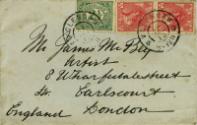 Mr James McBey
Artist
8 Wharfedale Street
Earlscourt
England London